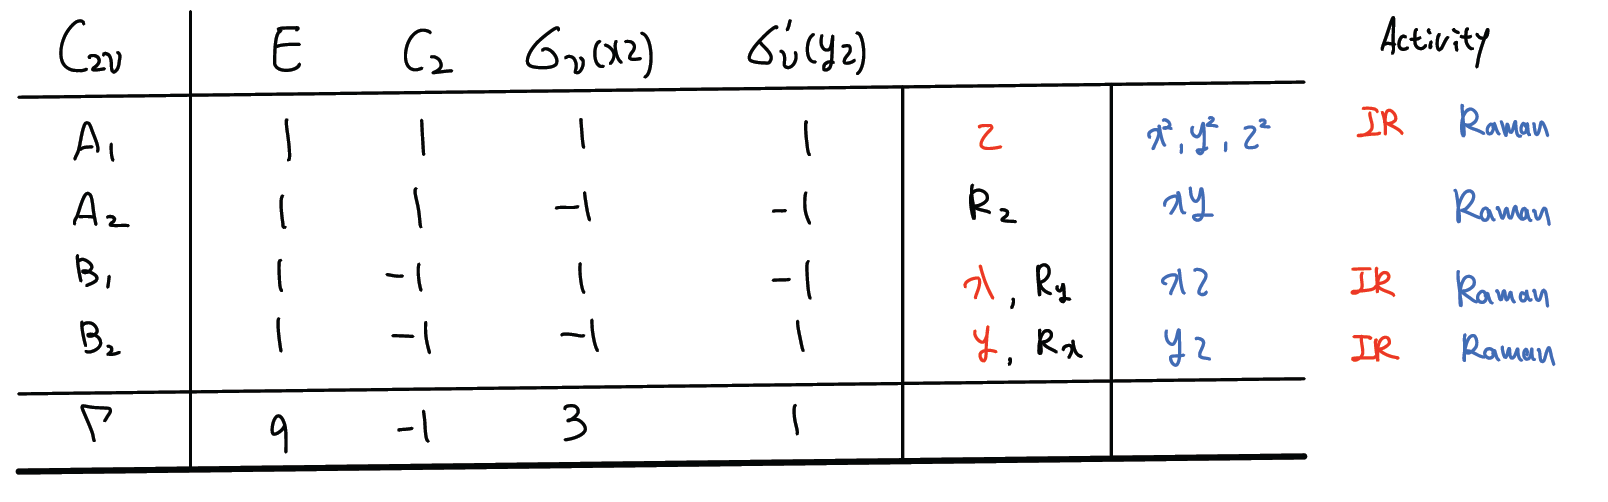 C₂ᵥ E C₂ σᵥ(xz) σᵥ'(yz) Activity
A₁ 1 1 1 1 z x², y², z² IR Raman
A₂ 1 1 -1 -1 R₂ xy Raman
B₁ 1 -1 1 -1 x, Ry xz IR Raman
B₂ 1 -1 -1 1 y, Rx yz IR Raman
Γ 9 -1 3 1